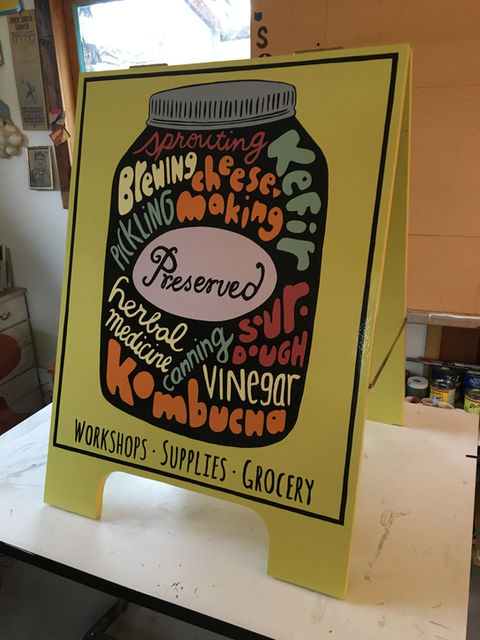 sprouting
Brewing
cheese.
making
Kefir
PICKLING
Preserved
herbal
medicine
canning
SOUR.
DOUGH
VINEGAR
Kombucha
WORKSHOPS · SUPPLIES · GROCERY